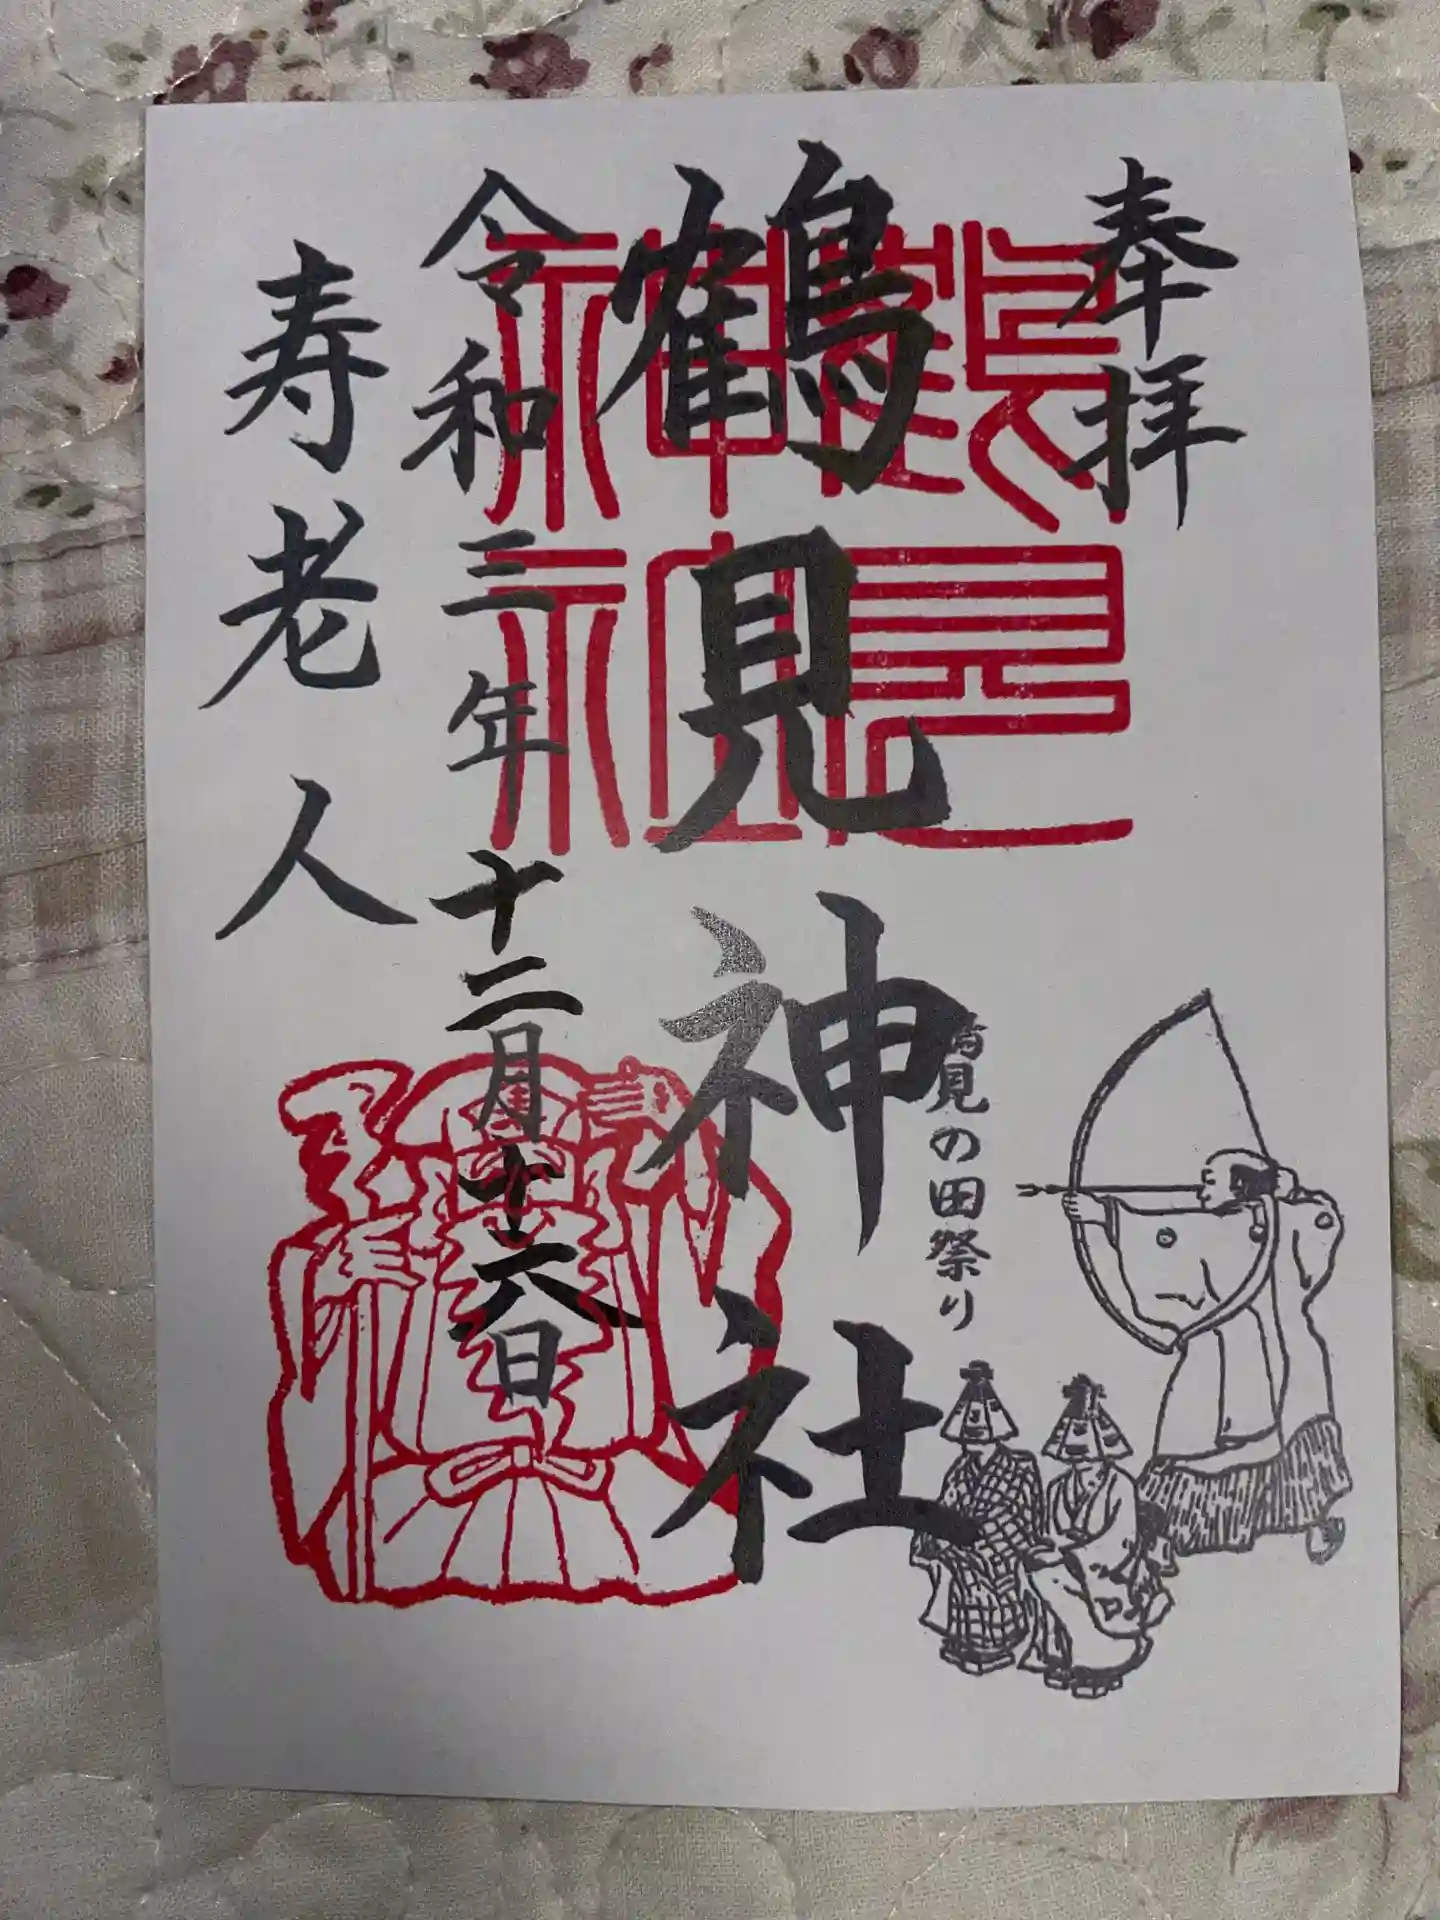 奉拝
鶴見神社
鶴見
神社
鶴見の田祭り
令和三年十二月十六日
寿老人